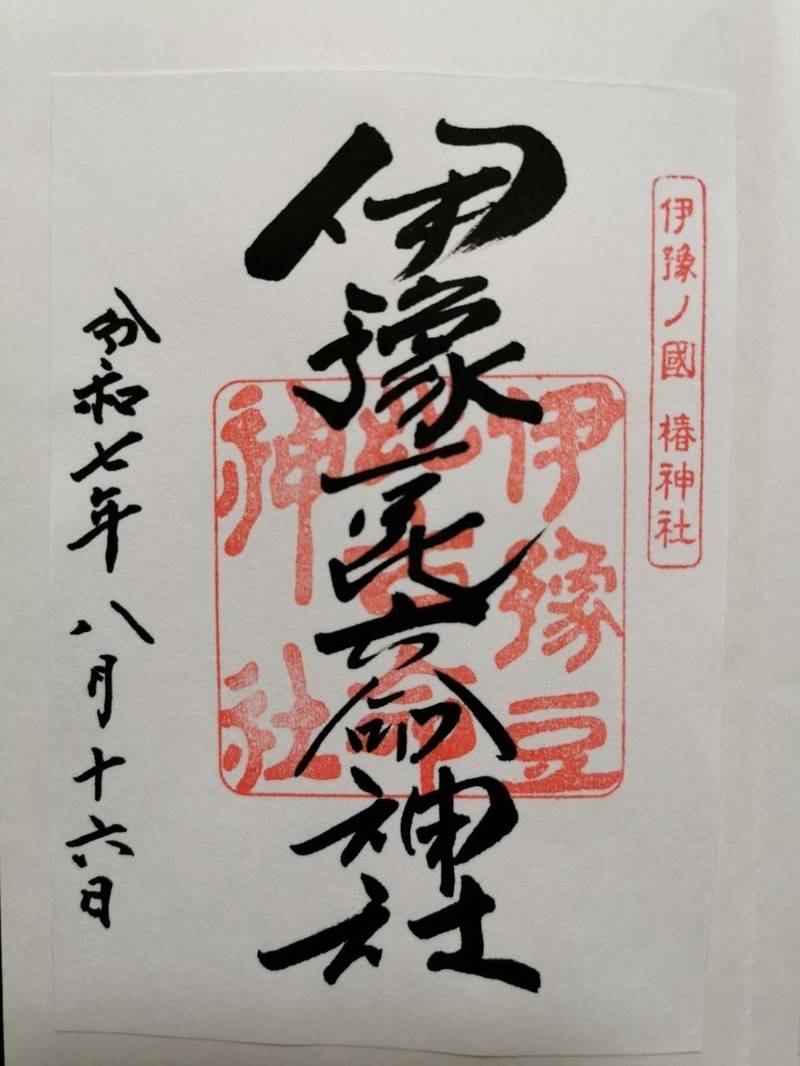 伊豫ノ國 椿神社
伊豫豆比古命神社
伊豫豆
比古命
神社
令和七年 八月十六日